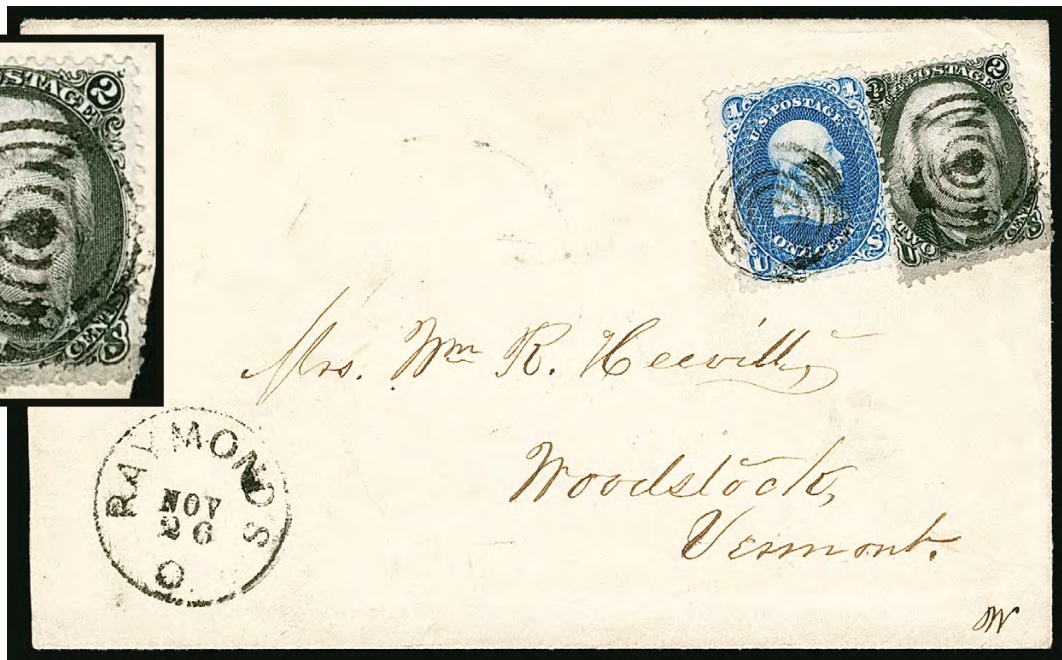 OSTAGE 2
CENTS S
1 U.S. POSTAGE 1
ONE CENT
U S
2 POSTAGE 2
U TWO CENTS S
Mrs. Wm R. Hewitt,
Woodstock,
Vermont.
RAYMONDS
NOV
26
O.